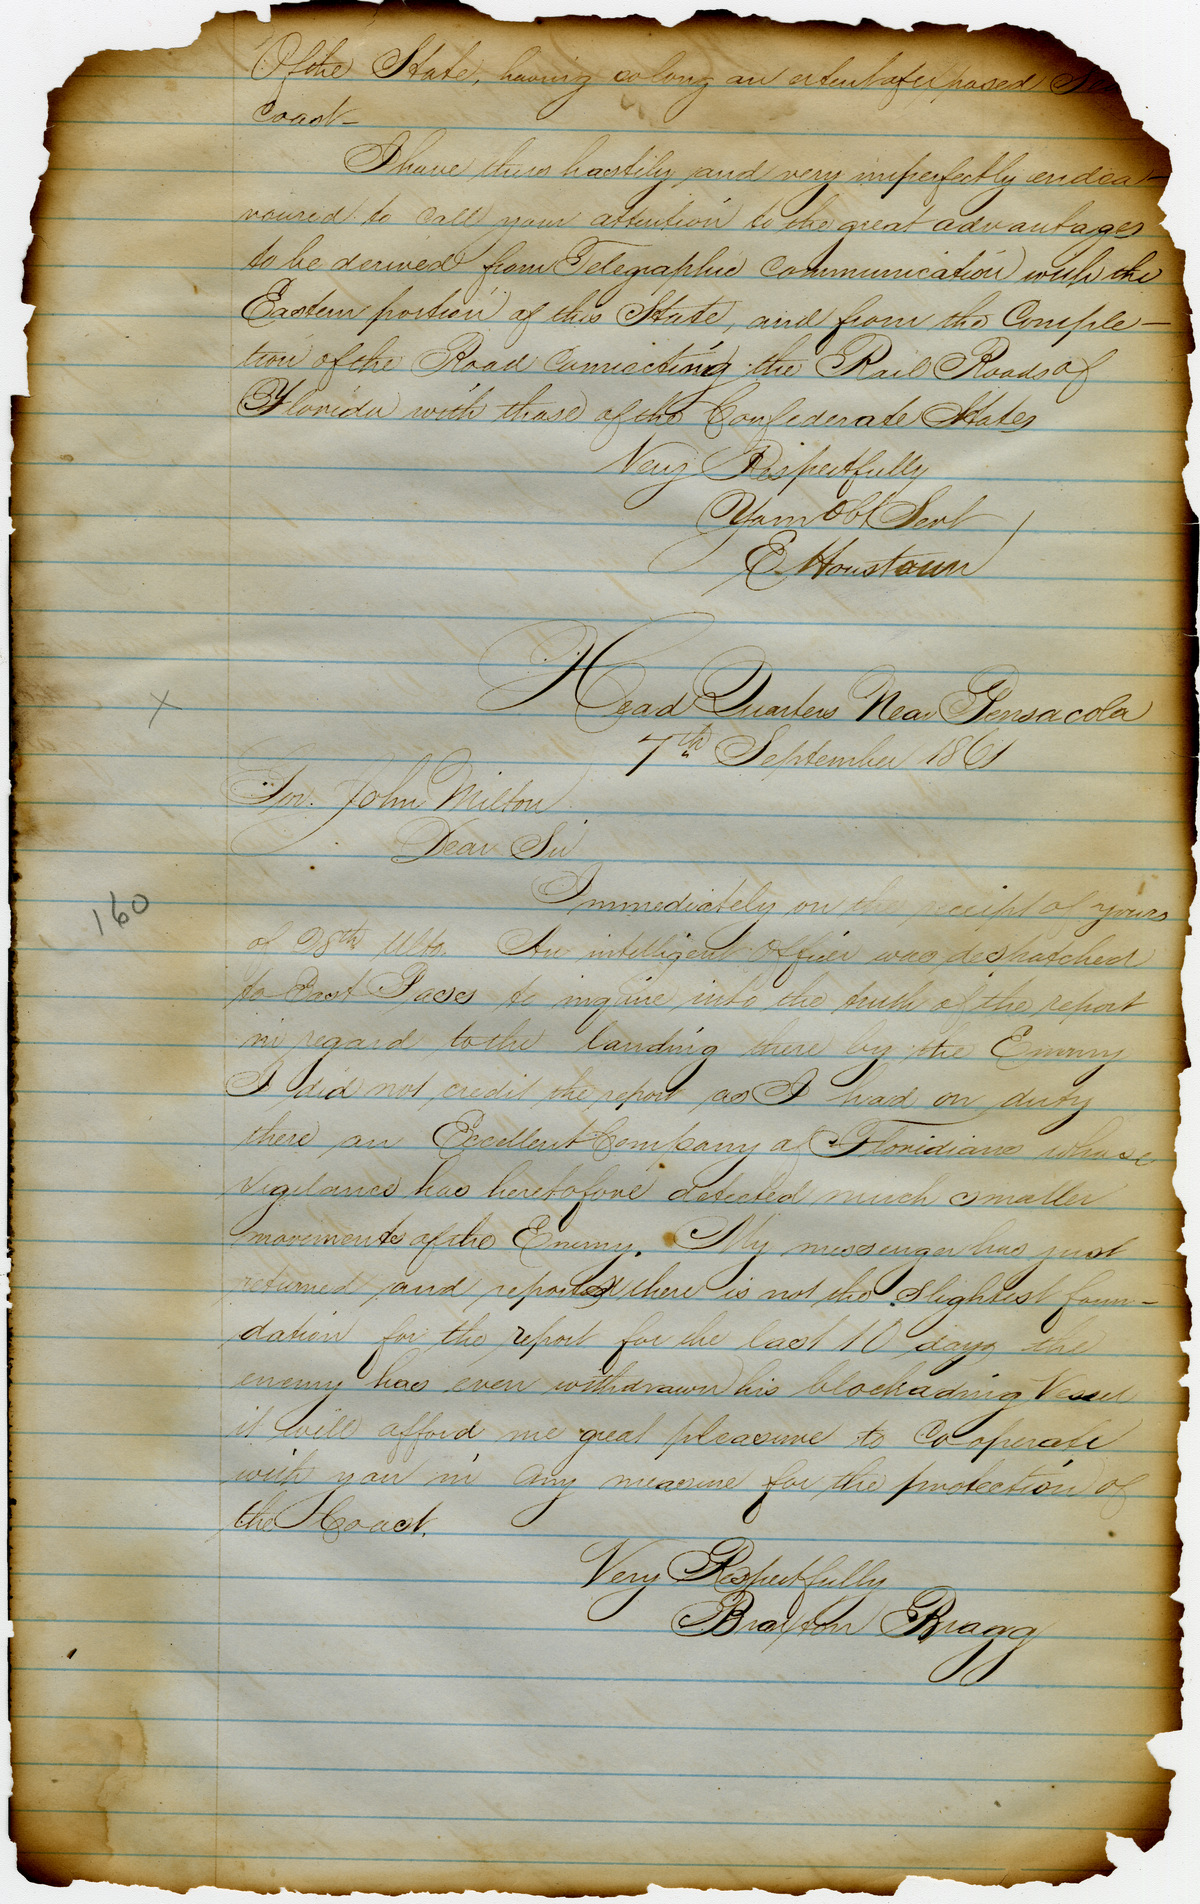 Of the State, having so long an extent of exposed Sea
Coast—
I have thus hastily and very imperfectly endea—
voured to call your attention to the great advantages
to be derived from Telegraphic Communication with the
Eastern portion of this State, and from the Comple—
tion of the Road Connecting the Rail Roads of
Florida with those of the Confederate States
Very Respectfully
Your Obt Servt
E. Houstoun
Head Quarters Near Pensacola
7th September 1861
X
Gov. John Milton
Dear Sir
Immediately on the receipt of yours
160
of 28th Ulto. An intelligent Officer was despatched
to East Pass to inquire into the truth of the report
in regard to the landing there by the Enemy
I did not credit the report as I had on duty
there an Excellent Company of Floridians whose
vigilance has heretofore detected much smaller
movements of the Enemy. My messenger has just
returned and reports there is not the slightest foun—
dation for the report for the last 10 days the
enemy has even withdrawn his blockading Vessel
it will afford me great pleasure to Cooperate
with you in any measure for the protection of
the Coast.
Very Respectfully
Braxton Bragg